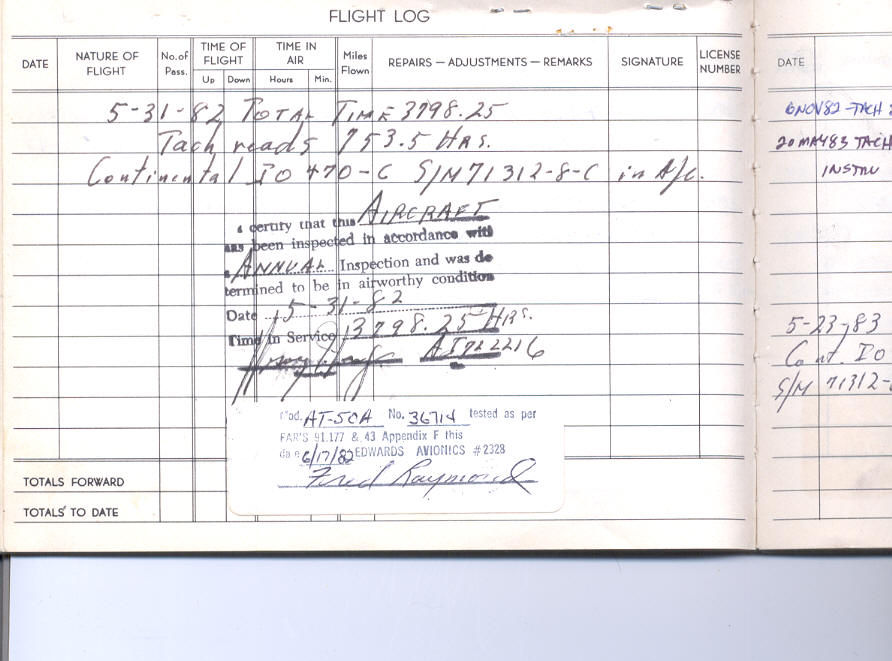 FLIGHT LOG
DATE NATURE OF FLIGHT No. of Pass. TIME OF FLIGHT Up Down TIME IN AIR Hours Min. Miles Flown REPAIRS — ADJUSTMENTS — REMARKS SIGNATURE LICENSE NUMBER
5-31-82 TOTAL TIME 3798.25
Tach reads 753.5 HRS.
Continental IO 470-C S/N 71312-8-C in A/C.
certify that this AIRCRAFT
has been inspected in accordance with
ANNUAL Inspection and was de
termined to be in airworthy condition
Date 5-31-82
Time in Service 3798.25 HRS.
Mod. AT-50A No. 36714 tested as per
FAR'S 91.177 & 43 Appendix F this
date 6/17/82 EDWARDS AVIONICS #2328
Fred Raymond
TOTALS FORWARD
TOTALS TO DATE
DATE
6NOV82-TACH
20MAY83 TACH
INSTRU
5-23-83
Cont. IO
S/N 71312-